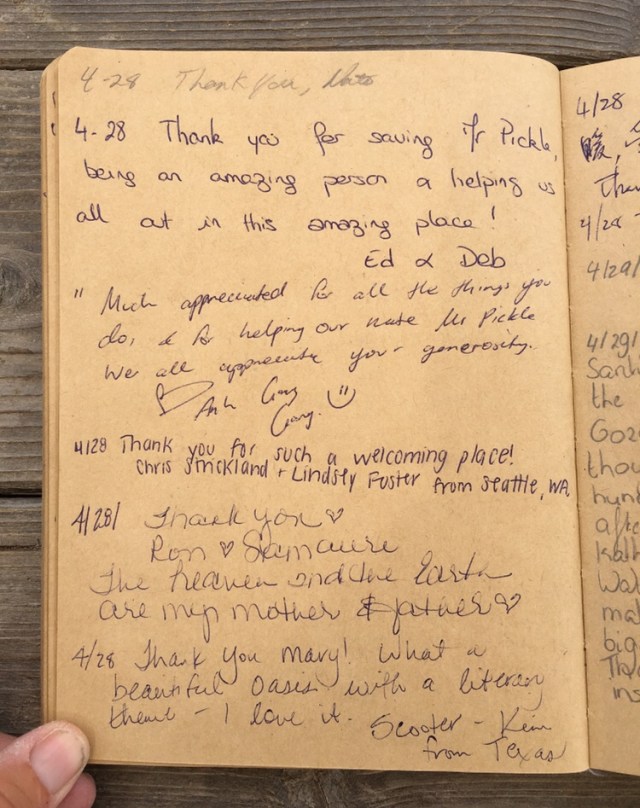 4-28 Thank you, Nate
4-28 Thank you for saving Mr Pickle,
being an amazing person & helping us
all out in this amazing place!
Ed & Deb
" Much appreciated for all the things you
do, & for helping our mate Mr Pickle
We all appreciate your generosity.
♡ Ash
4/28 Thank you for such a welcoming place!
Chris Strickland + Lindsey Foster from Seattle, WA
4/28/ Thank you ♡
Ron ♡
The heaven and the Earth
are my mother & father ♡
4/28 Thank you Mary! What a
beautiful oasis with a literary
theme - I love it.
Scooter - Kim
from Texas
4/28
暖,
4/29
4/29/
4/29/
the